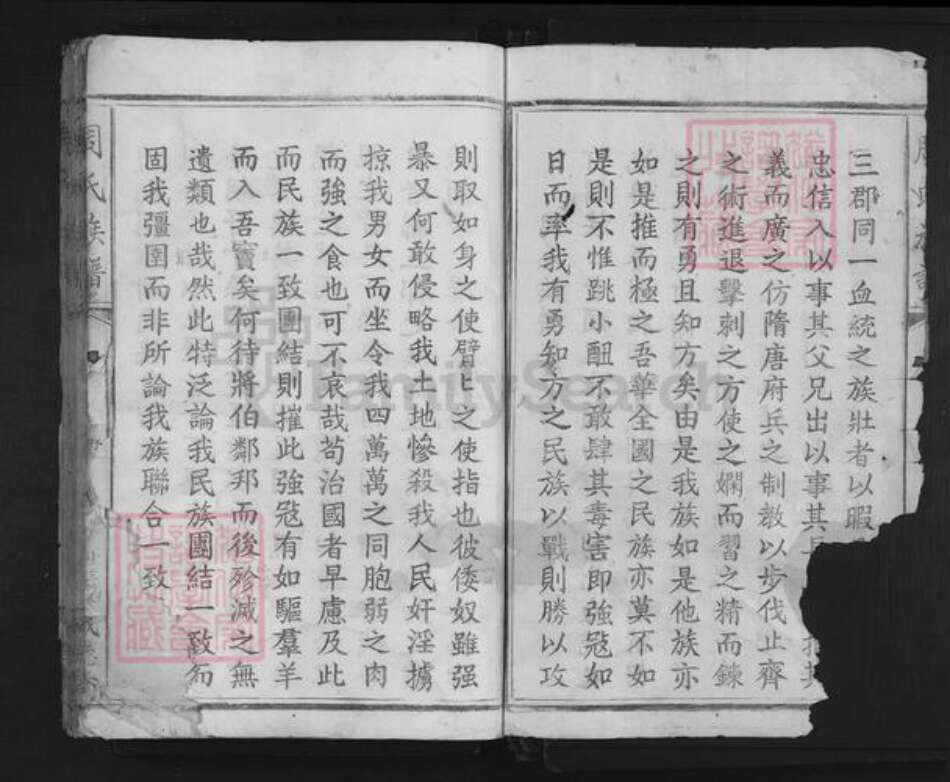 三郡同一血統之族壯者以暇
忠信入以事其父兄出以事其
義而廣之仿隋唐府兵之制教以步伐止齊
之術進退擊刺之方使之嫻而習之精而鍊
之則有勇且知方矣由是我族如是他族亦
如是推而極之吾華全國之民族亦莫不如
是則不惟跳小醜不敢肆其毒害即強寇如
日而率我有勇知方之民族以戰則勝以攻
則取如身之使臂匕之使指也彼倭奴雖强
暴又何敢侵略我土地慘殺我人民奸淫擄
掠我男女而坐令我四萬萬之同胞弱之肉
而強之食也可不哀哉苟治國者早慮及此
而民族一致團結則摧此強寇有如驅羣羊
而入吾竇矣何待將伯鄰邦而後殄滅之無
遺類也哉然此特泛論我民族團結一致而
固我彊圉而非所論我族聯合一致
周氏族譜
FamilySearch